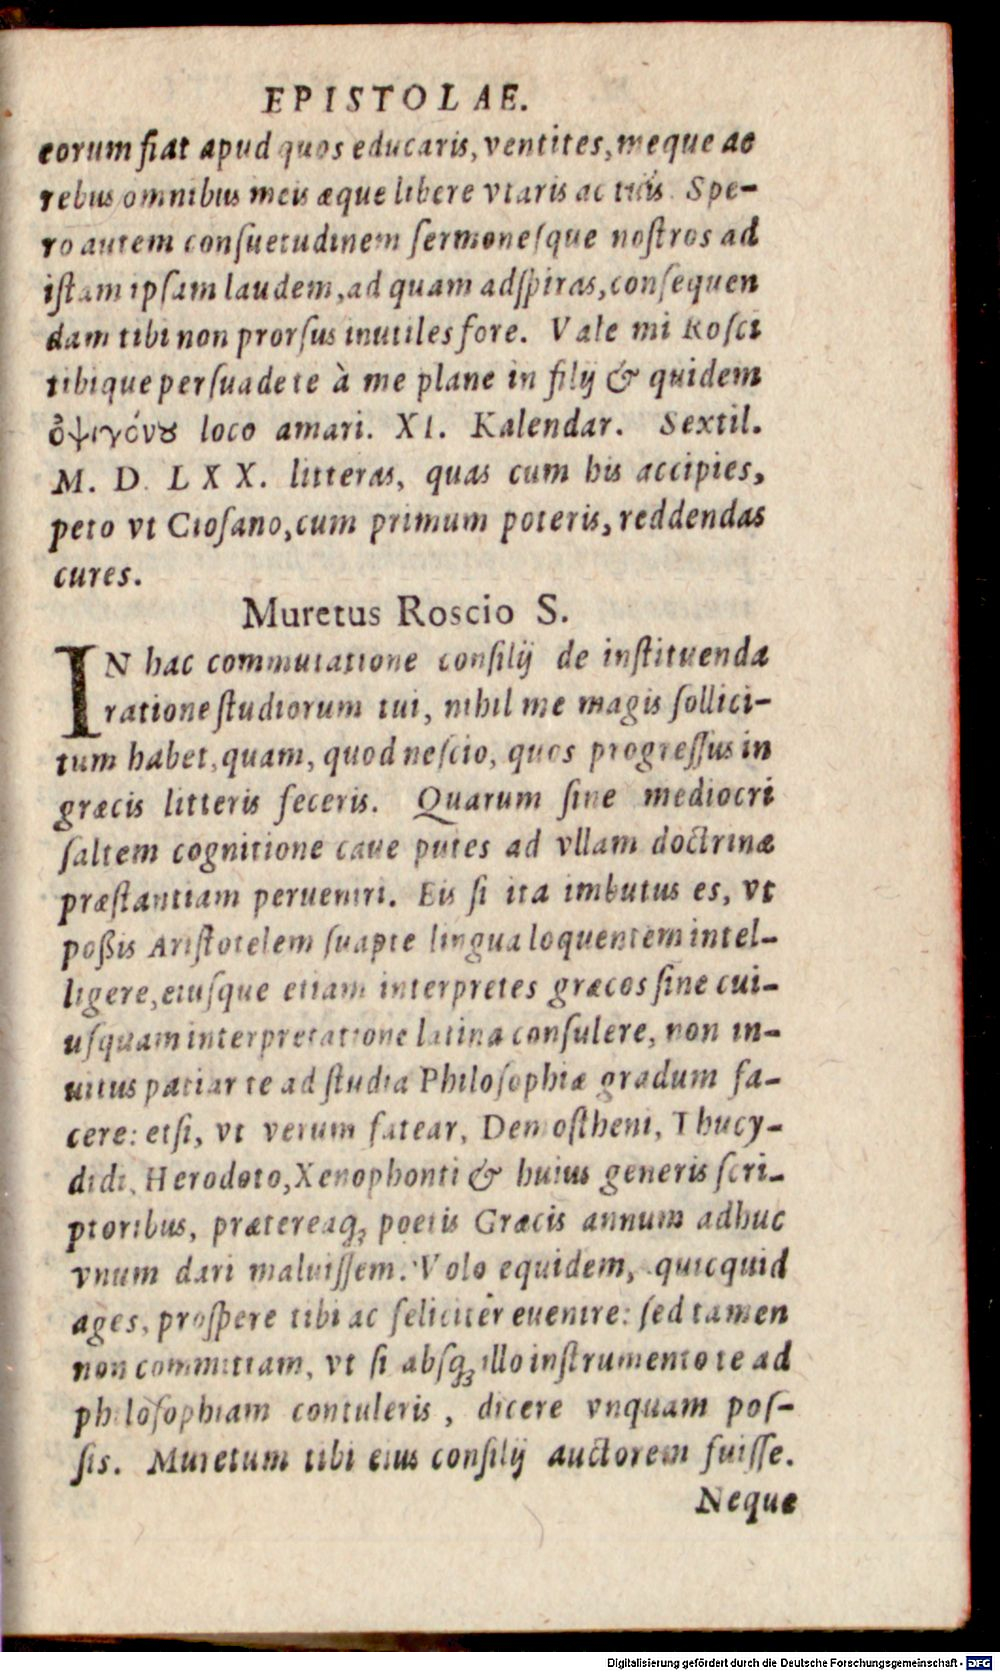 EPISTOLAE.
eorum fiat apud quos educaris, ventites, meque ac
rebus omnibus meis æque libere vtaris ac tuis. Spe-
ro autem consuetudinem sermonesque nostros ad
istam ipsam laudem, ad quam adspiras, consequen
dam tibi non prorsus inutiles fore. Vale mi Rosci
tibique persuade te à me plane in filij & quidem
ὀψιγόνου loco amari. XI. Kalendar. Sextil.
M. D. L X X. litteras, quas cum his accipies,
peto vt Ciofano, cum primum poteris, reddendas
cures.
Muretus Roscio S.
IN hac commutatione consilij de instituenda
ratione studiorum tui, nihil me magis sollici-
tum habet, quam, quod nescio, quos progressus in
græcis litteris feceris. Quarum sine mediocri
saltem cognitione caue putes ad vllam doctrinæ
præstantiam perueniri. Eis si ita imbutus es, vt
poßis Aristotelem suapte lingua loquentem intel-
ligere, eiusque etiam interpretes græcos sine cui-
usquam interpretatione latina consulere, non in-
uitus patiar te ad studia Philosophiæ gradum fa-
cere: etsi, vt verum fatear, Demostheni, Thucy-
didi, Herodoto, Xenophonti & huius generis scri-
ptoribus, prætereaq; poetis Græcis annum adhuc
vnum dari maluissem. Volo equidem, quicquid
ages, prospere tibi ac feliciter euenire: sed tamen
non committam, vt si absq; illo instrumento te ad
philosophiam contuleris, dicere vnquam pos-
sis. Muretum tibi eius consilij auctorem fuisse.
Neque
Digitalisierung gefördert durch die Deutsche Forschungsgemeinschaft - DFG